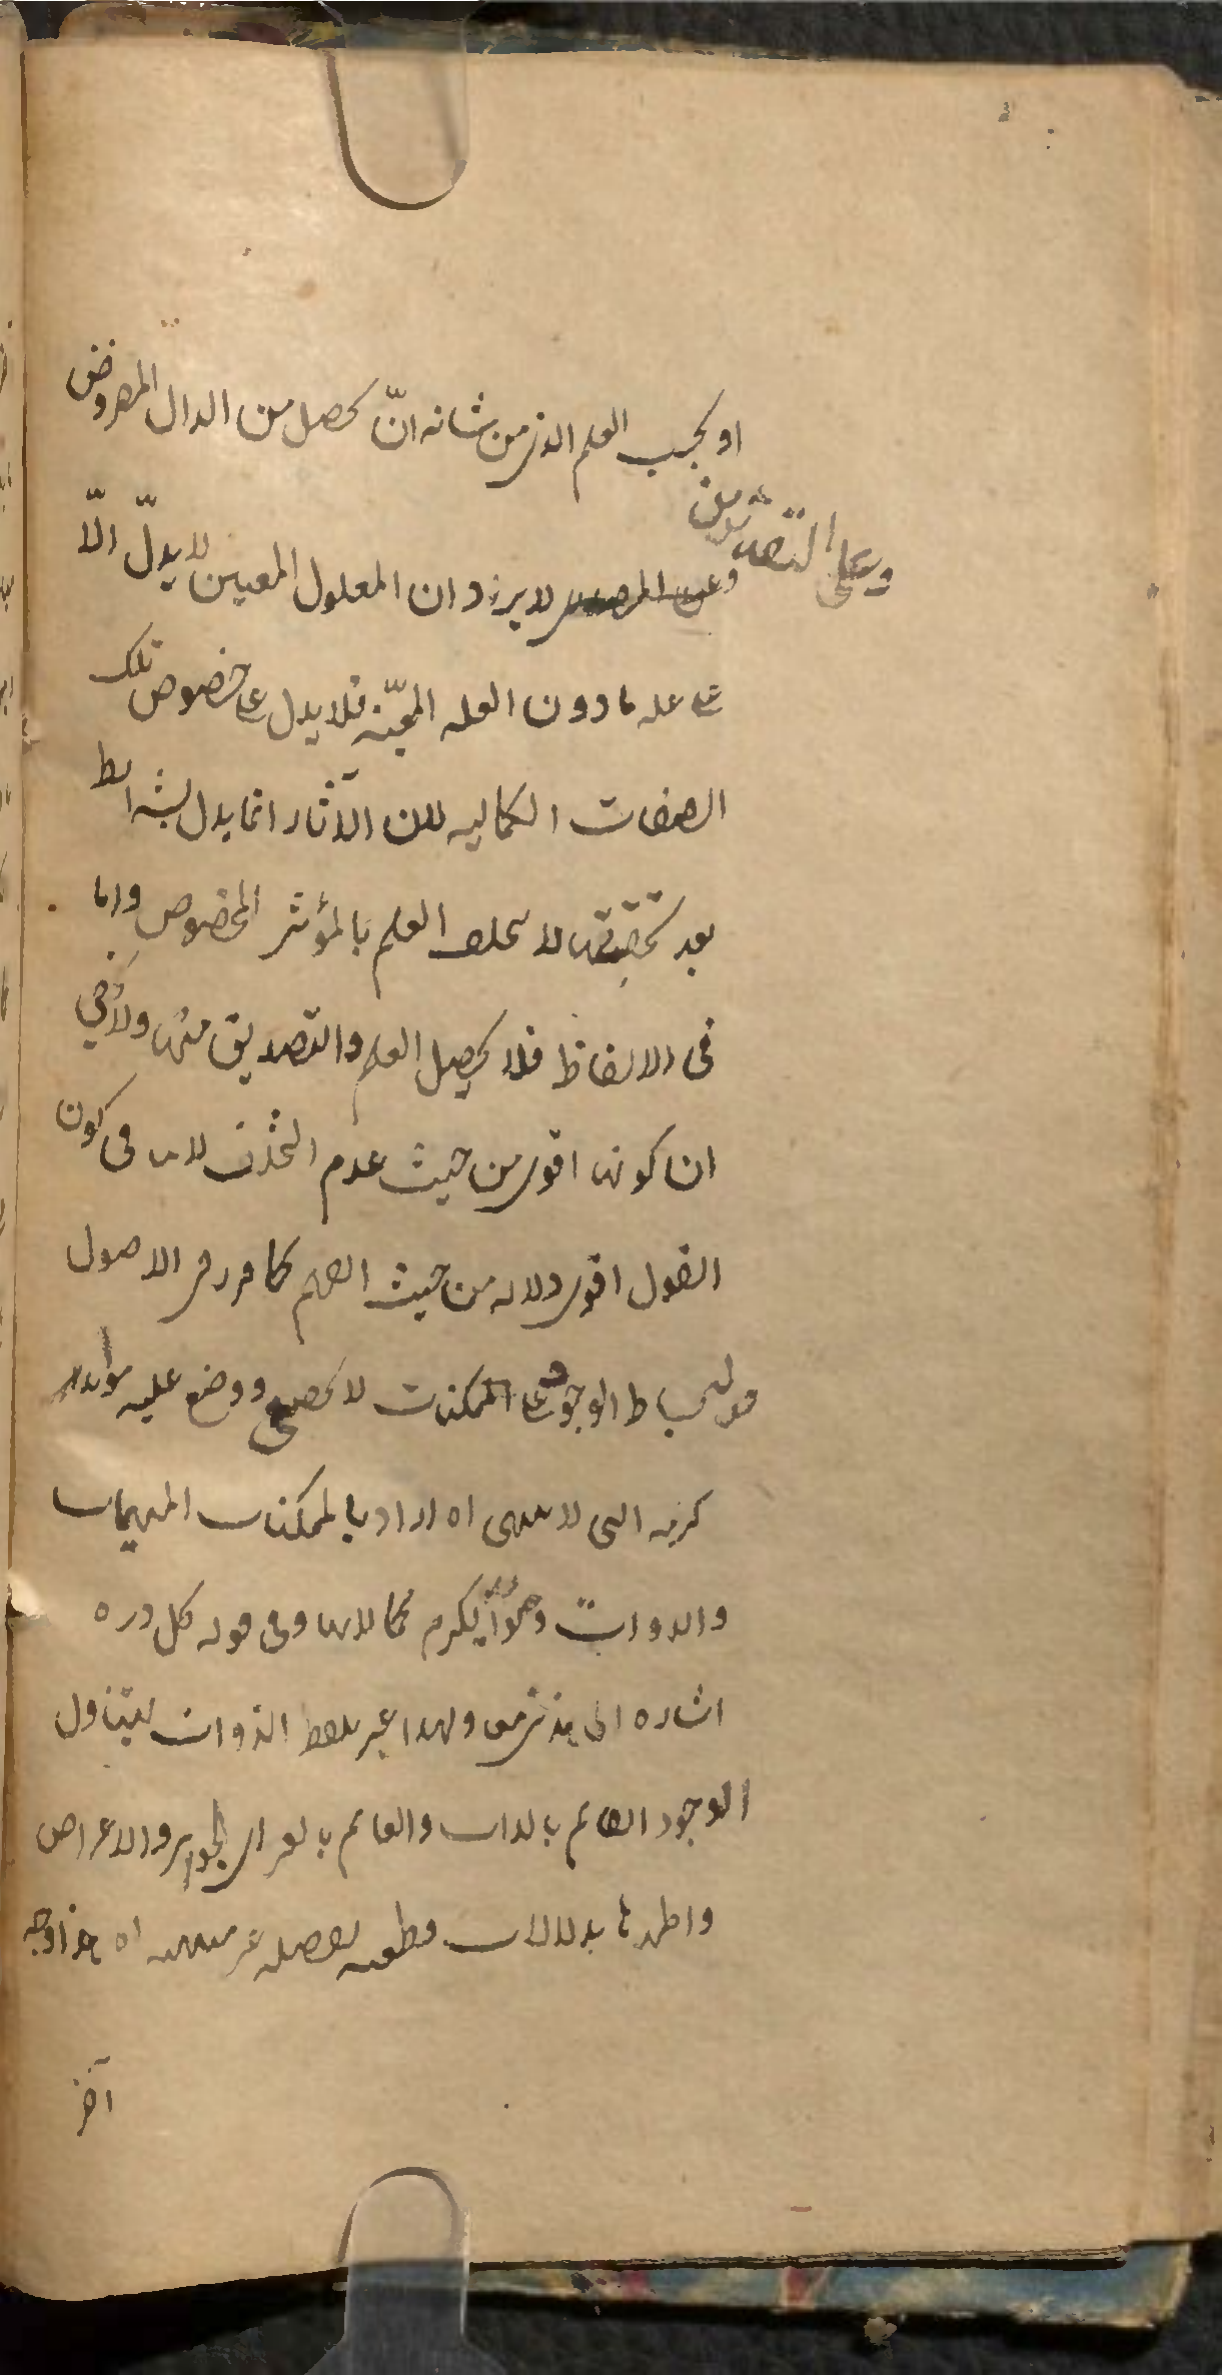 او يجب العلم الذى من شانه انّ يحصل من الدال المفروض
وعلى التقديرين
لا يرد ان المعلول المعين لا يدلّ الّا
على علة ما دون العله المعيّنه فلا يدل على خصوص تلك
الصفات الكماليه لان الآثار انما يدل بشرائط
بعد تحققها لا يتخلف العلم بالمؤثر المخصوص واما
فى الالفاظ فلا يحصل العلم والتصديق منها ولا يخفى
ان كونها اقوى من حيث عدم التخلف لا ينافى كون
القول اقوى دلاله من حيث الفهم كما قرر فى الاصول
قوله بساط الوجود على الممكنات لا تحصى ووضع عليه موائد
كرمه التى لا تتناهى اه اراد بالممكنات المهيات
والذوات وموائد الكرم كمالاتها وفى قوله كل ذره
اشاره الى هذين ولهذا عبر بلفظ الذوات ليتناول
الوجود القائم بالذات والقائم بالغير اى الجواهر والاعراض
واظهرها بدلالات قطعيه تفصيليه غير متناهيه اه هذا وجه
آخر